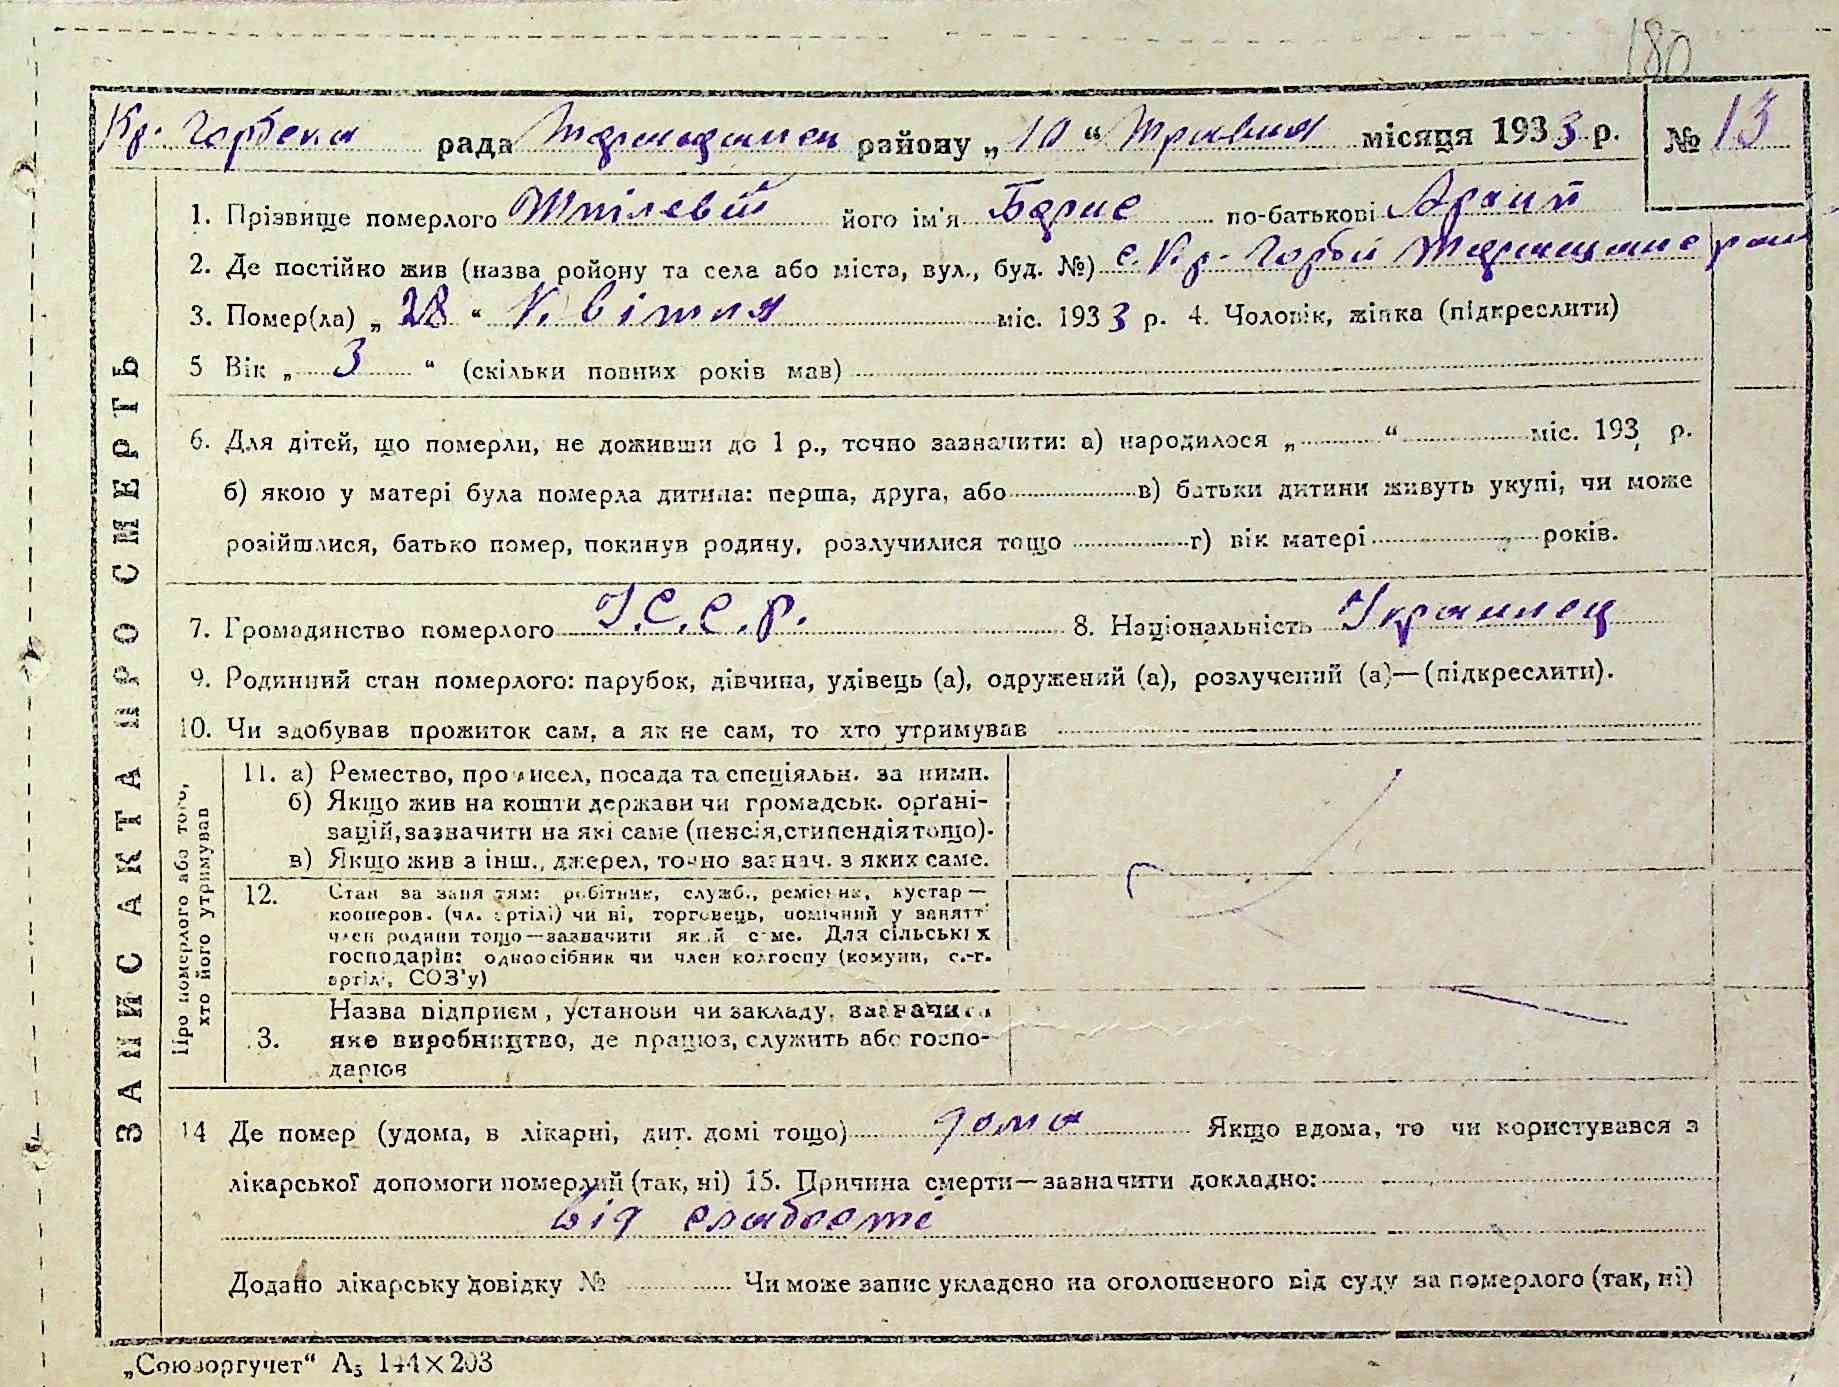 180
Кр. Горбська рада Тиращанськ району „10“ Травня місяця 1933 р. № 13
ЗАПИС АКТА ПРО СМЕРТЬ
1. Прізвище померлого Шпілевій його ім'я Борис по-батькові
2. Де постійно жив (назва ройону та села або міста, вул., буд. №) с. Кр- Горби
3. Помер(ла) „28“ Квітня міс. 1933 р. 4. Чоловік, жінка (підкреслити)
5 Вік „3“ (скільки повних років мав)
6. Для дітей, що померли, не доживши до 1 р., точно зазначити: а) народилося „ “ міс. 193 р.
б) якою у матері була померла дитина: перша, друга, або в) батьки дитини живуть укупі, чи може
розійшлися, батько помер, покинув родину, розлучилися тощо г) вік матері років.
7. Громадянство померлого У.С.С.Р. 8. Національність Украинец
9. Родинний стан померлого: парубок, дівчина, удівець (а), одружений (а), розлучений (а)—(підкреслити).
10. Чи здобував прожиток сам, а як не сам, то хто утримував
Про померлого або того,
хто його утримував
11. а) Ремество, промисел, посада та спеціяльн. за ними.
б) Якщо жив на кошти держави чи громадськ. орґані-
зацій, зазначити на які саме (пенсія, стипендія тощо).
в) Якщо жив з інш., джерел, точно зазнач. з яких саме.
12. Стан за заняттям: робітник, служб., ремісник, кустар —
кооперов. (чл. артілі) чи ні, торговець, помічний у занятті
член родини тощо—зазначити який саме. Для сільських
господарів: одноосібник чи член колгоспу (комуни, с.-г.
артілі, СОЗ'у)
Назва підприєм, установи чи закладу, зазначити
3. яке виробництво, де працює, служить або госпо-
дарює
14 Де помер (удома, в лікарні, дит. домі тощо) дома Якщо вдома, то чи користувався з
лікарської допомоги померлий (так, ні) 15. Причина смерти—зазначити докладно:
від слабості
Додано лікарську довідку № Чи може запис укладено на оголошеного від суду за померлого (так, ні)
„Союзоргучет“ А5 144×203